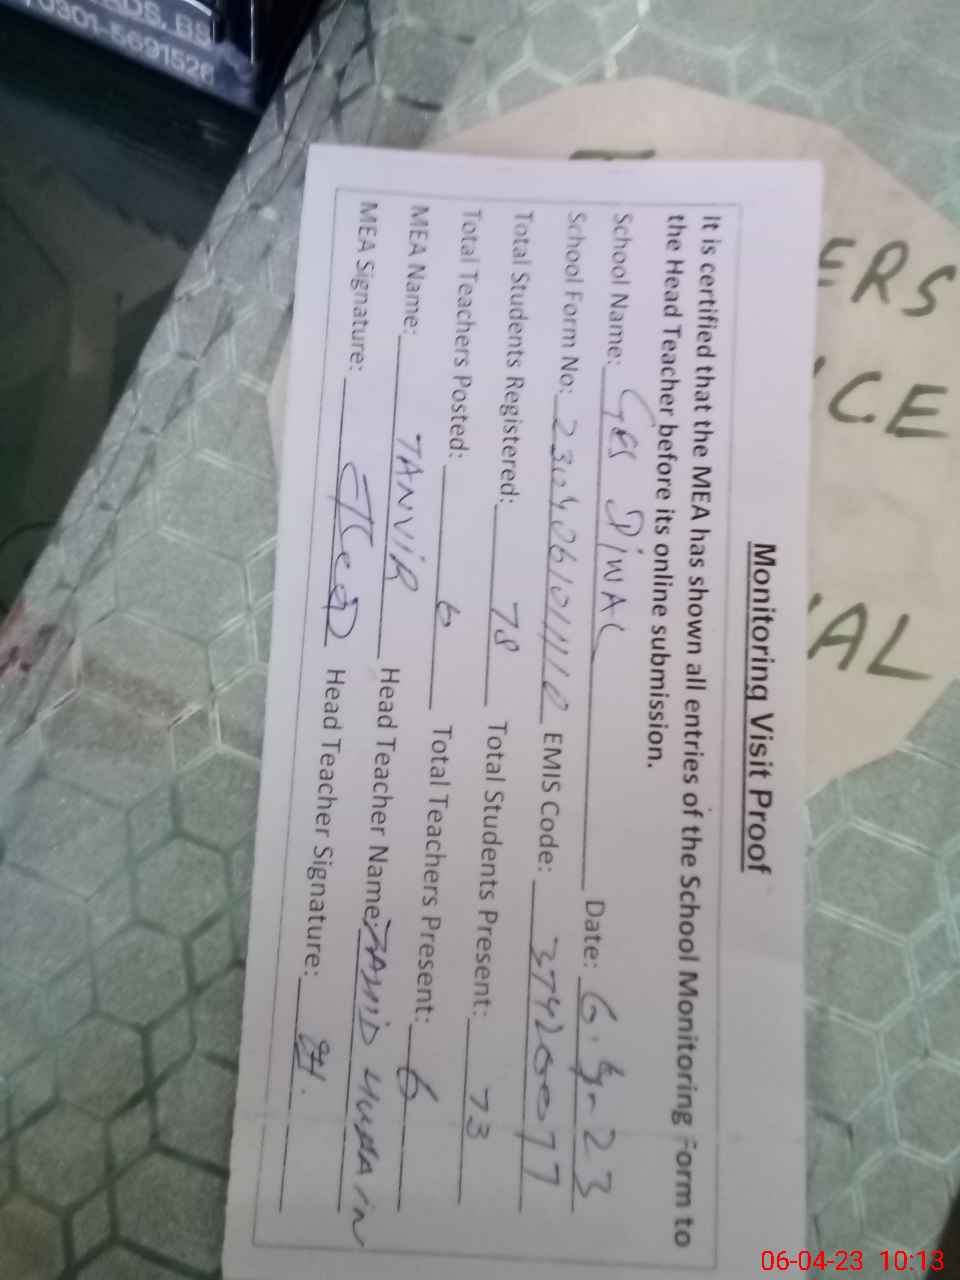 Monitoring Visit Proof
It is certified that the MEA has shown all entries of the School Monitoring Form to
the Head Teacher before its online submission.
School Name: GES DiWAL Date: 6-4-23
School Form No: EMIS Code:
Total Students Registered: 78 Total Students Present: 73
Total Teachers Posted: 6 Total Teachers Present: 6
MEA Name: TANViR Head Teacher Name:
MEA Signature: Head Teacher Signature:
ERS
CE
AL
0301-5691526
06-04-23 10:13